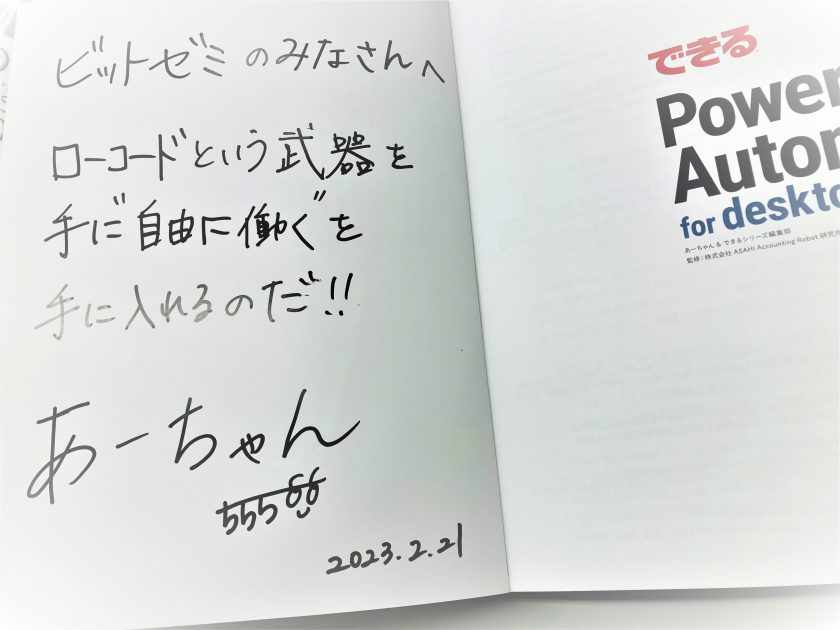 ビットゼミのみなさんへ
ローコードという武器を
手に"自由に働く"を
手に入れるのだ!!
あーちゃん
55566
2023.2.21
できる
Power
Autom
for deskto
あーちゃん & できるシリーズ編集部
監修:株式会社 ASAHI Accounting Robot 研究所